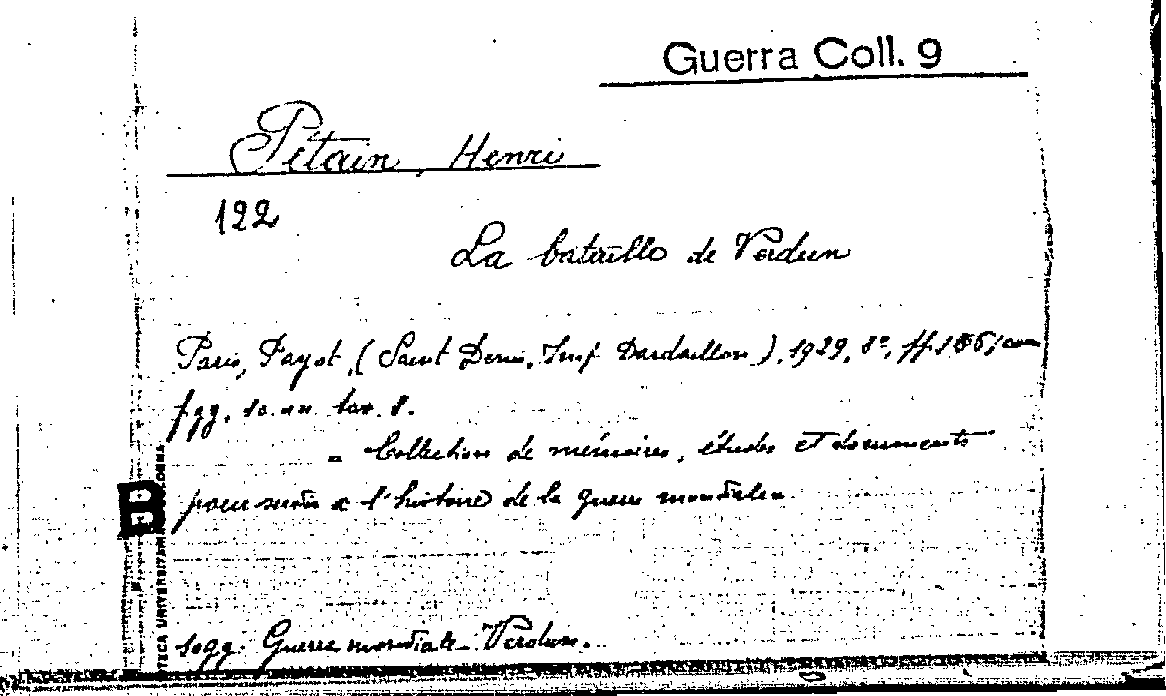 Guerra Coll. 9
Pétain, Henri
122
La bataille de Verdun
Paris, Payot, (Saint Denis, Imp. Dardaillon), 1929, 8°, con
fgg. 10 in tav. 8.
= Collection de mémoires, études et documents
pour servir a l'histoire de la guerre mondiale =
Sogg. Guerra mondiale - Verdun.